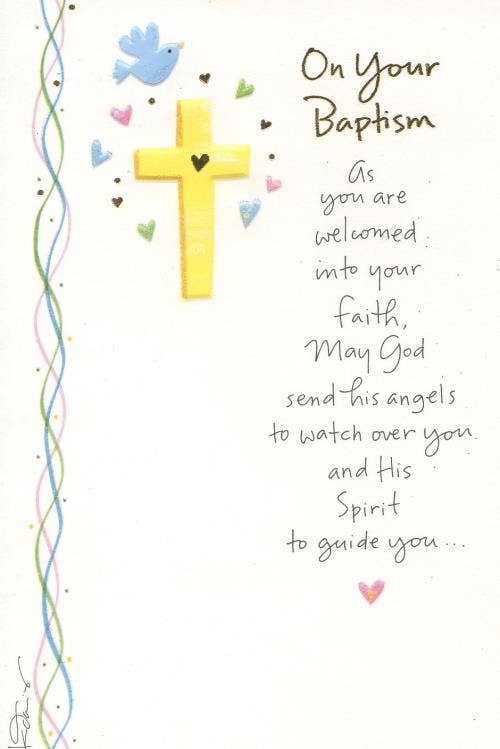 On Your
Baptism
As
you are
welcomed
into your
faith,
May God
send his angels
to watch over you
and His
Spirit
to guide you...